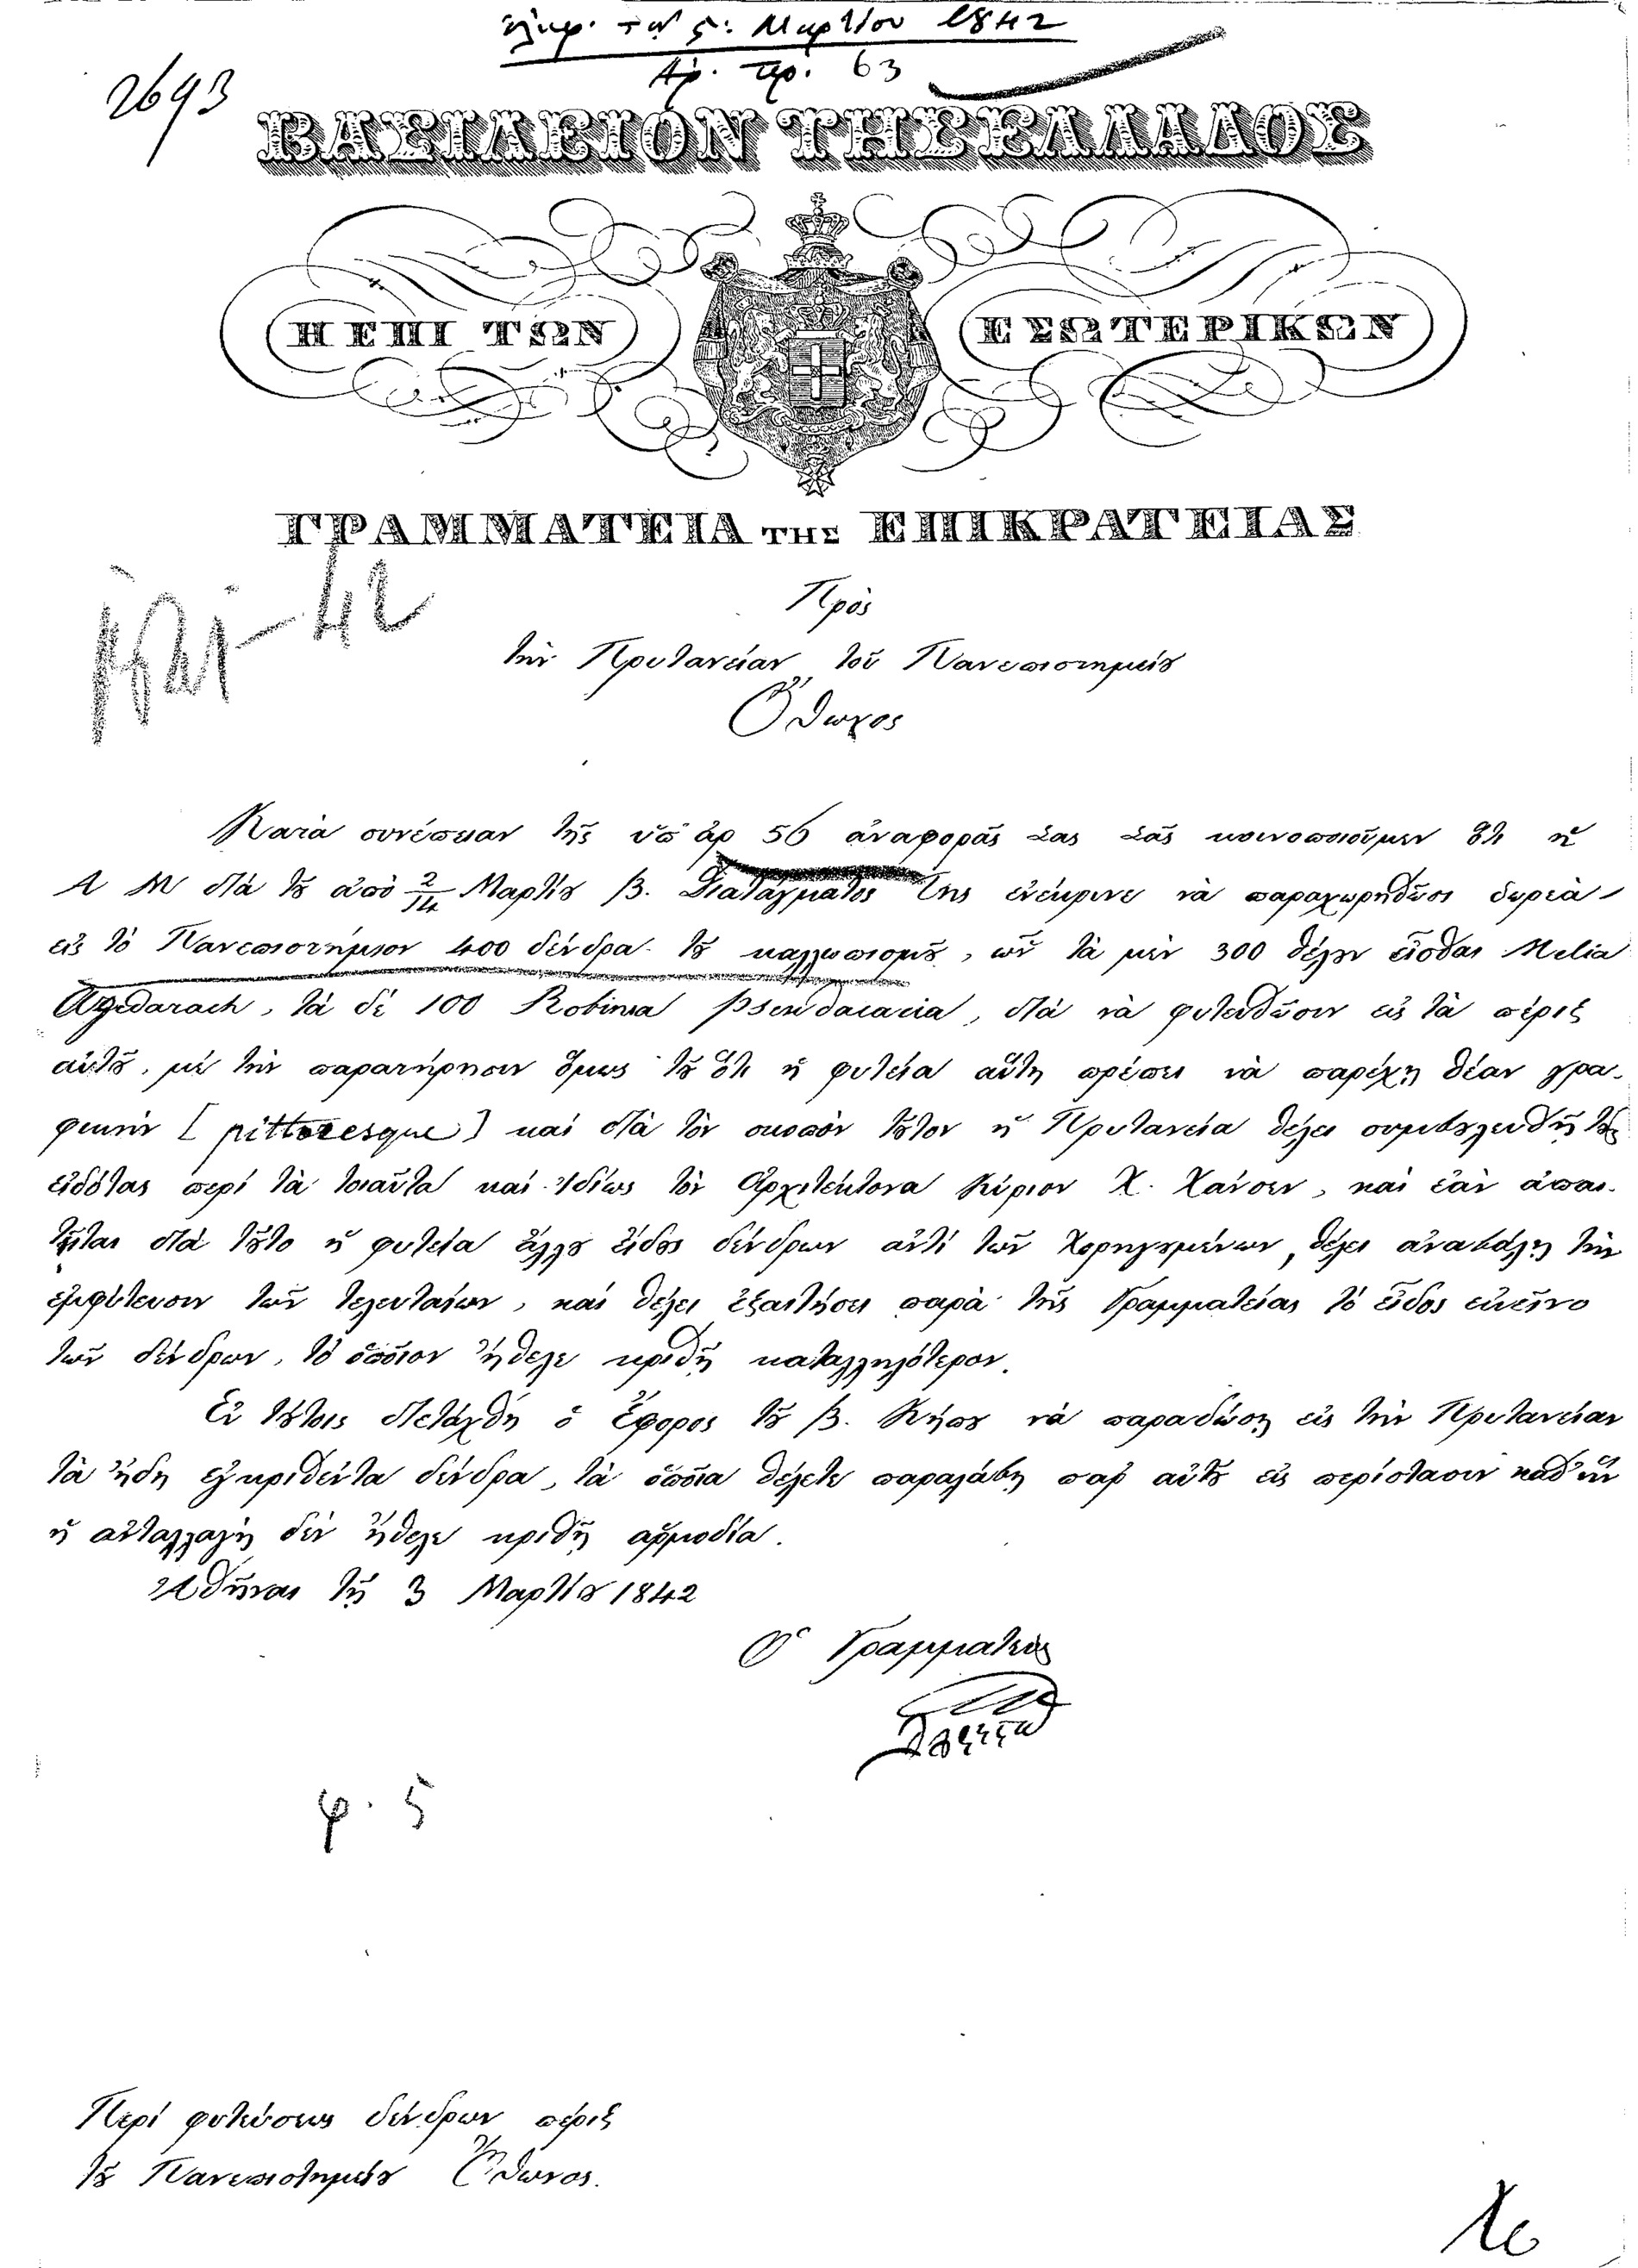 ἐλήφ. τὴν 5: Μαρτίου 1842
Ἀρ. πρ. 63
2693
ΒΑΣΙΛΕΙΟΝ ΤΗΣ ΕΛΛΑΔΟΣ
Η ΕΠΙ ΤΩΝ ΕΣΩΤΕΡΙΚΩΝ
ΓΡΑΜΜΑΤΕΙΑ ΤΗΣ ΕΠΙΚΡΑΤΕΙΑΣ
42
Πρὸς
τὴν Πρυτανείαν τοῦ Πανεπιστημείȣ
Ὄθωνος
Κατὰ συνέπειαν τῆς ὑπ' ἀρ 56 ἀναφορᾶς σας σᾶς κοινοποιοῦμεν ὅτι ἡ
Α Μ διὰ τȣ ἀπὸ 2/14 Μαρτίȣ β. Διατάγματός της ἐνέκρινε νὰ παραχωρηθῶσι δωρεὰ
εἰς τὸ Πανεπιστήμιον 400 δένδρα τȣ καλλωπισμȣ͂, ὧν τὰ μὲν 300 θέλȣν εἶσθαι Melia
Azedarach, τὰ δὲ 100 Robinia psendacacia, διὰ νὰ φυτευθῶσιν εἰς τὰ πέριξ
αὐτȣ͂, μὲ τὴν παρατήρησιν ὅμως τȣ͂ ὅτι ἡ φυτεία αὕτη πρέπει νὰ παρέχῃ θέαν γρα-
φικὴν [pittoresque] καὶ διὰ τὸν σκοπὸν τȣ͂τον ἡ Πρυτανεία θέλει συμβȣλευθῆ τȣς
εἰδότας περὶ τὰ τοιαῦτα καὶ ἰδίως τὸν Ἀρχιτέκτονα Κύριον Χ. Χάνσεν, καὶ ἐὰν ἀπαι-
τῆται διὰ τȣ͂το ἡ φυτεία ἄλλȣ εἴδȣς δένδρων ἀντὶ τῶν χορηγȣμένων, θέλει ἀναβάλῃ τὴν
ἐμφύτευσιν τῶν τελευταίων, καὶ θέλει ἐξαιτήσει παρὰ τῆς Γραμματείας τὸ εἶδος ἐκεῖνο
τῶν δένδρων, τὸ ὁποῖον ἤθελε κριθῆ καταλληλότερον.
Ἐν τȣ́τοις διετάχθη ὁ Ἔφορος τȣ͂ β. Κήπȣ νὰ παραδώσῃ εἰς τὴν Πρυτανείαν
τὰ ἤδη ἐγκριθέντα δένδρα, τὰ ὁποῖα θέλετε παραλάβῃ παρ' αὐτȣ͂ εἰς περίστασιν καθ' ἣν
ἡ ἀνταλλαγὴ δὲν ἤθελε κριθῆ ἁρμοδία.
Ἀθῆναι τῇ 3 Μαρτίȣ 1842
Ὁ Γραμματεὺς
φ. 5
Περὶ φυτεύσεως δένδρων πέριξ
τȣ͂ Πανεπιστημείȣ Ὄθωνος.